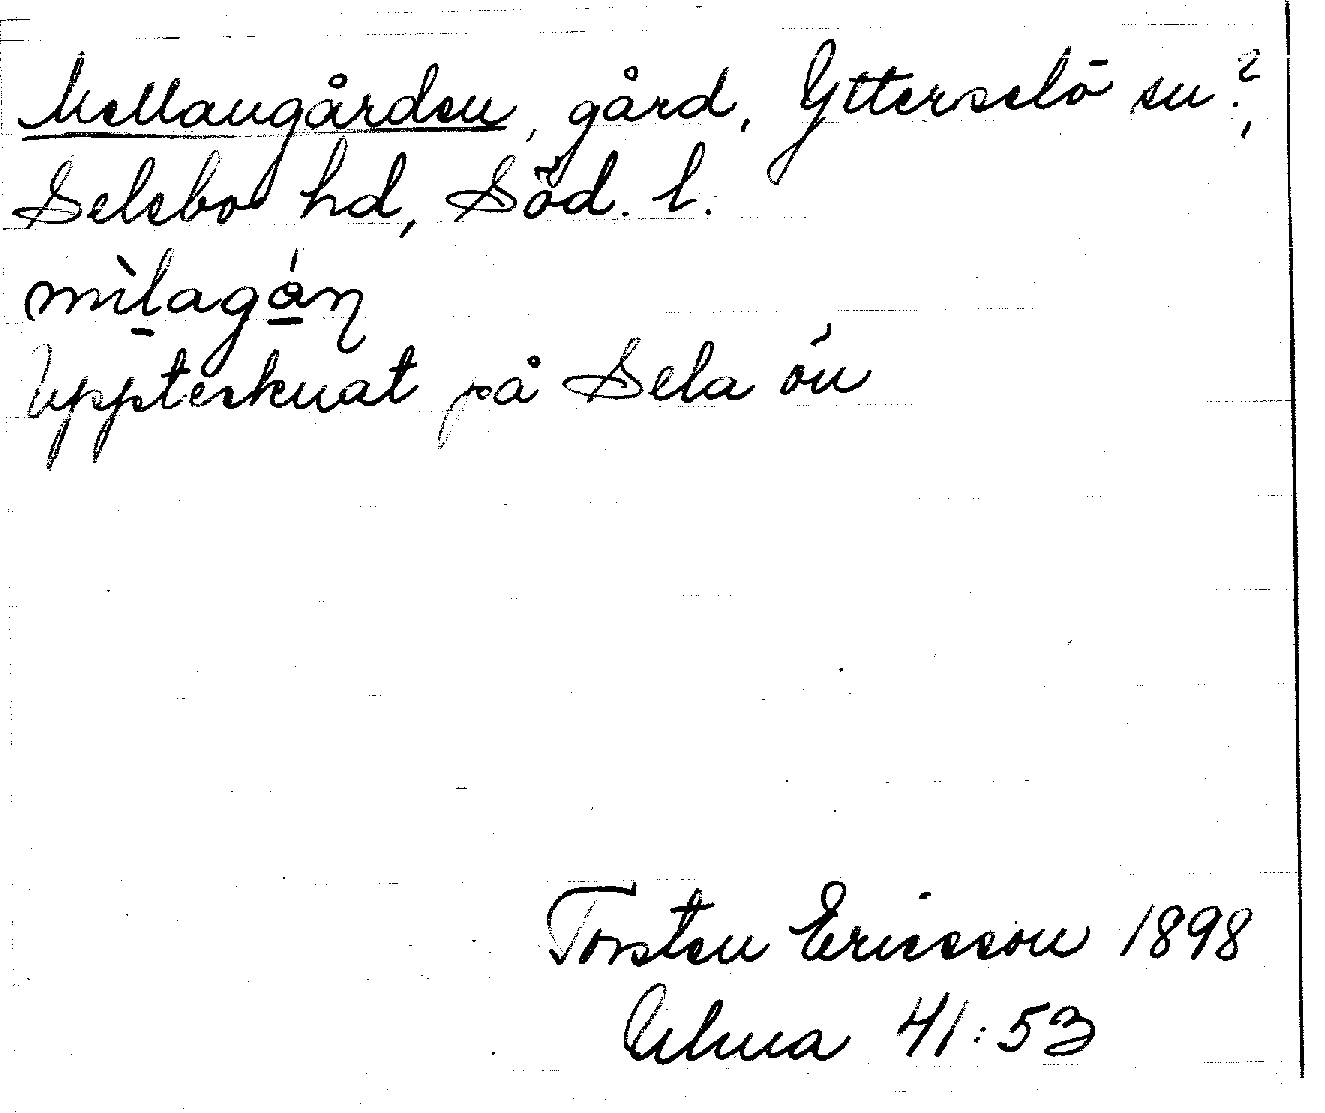 Mellangården, gård, Ytterselö sn?,
Selebo hd, Söd. l.
mìlagån
Upptecknat på Sela ön
Torsten Ericsson 1898
Ulma 41:53